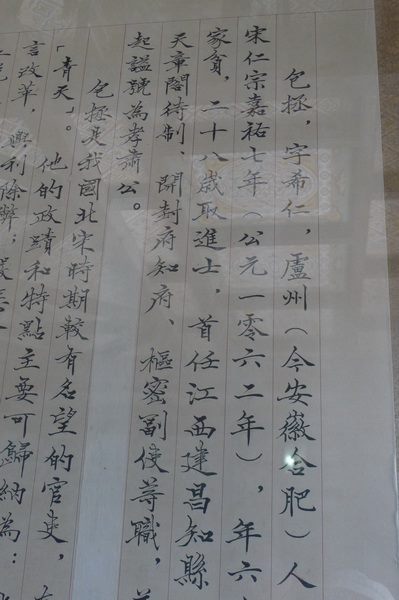 包拯，字希仁，盧州（今安徽合肥）人
宋仁宗嘉祐七年（公元一零六二年），年六
家貧，二十八歲取進士，首任江西建昌知縣
天章閣待制、開封府知府、樞密副使等職，
起謚號為孝肅公。
包拯是我國北宋時期較有名望的官吏，
「青天」。他的政蹟和特點主要可歸納為：
言改革，興利除弊；